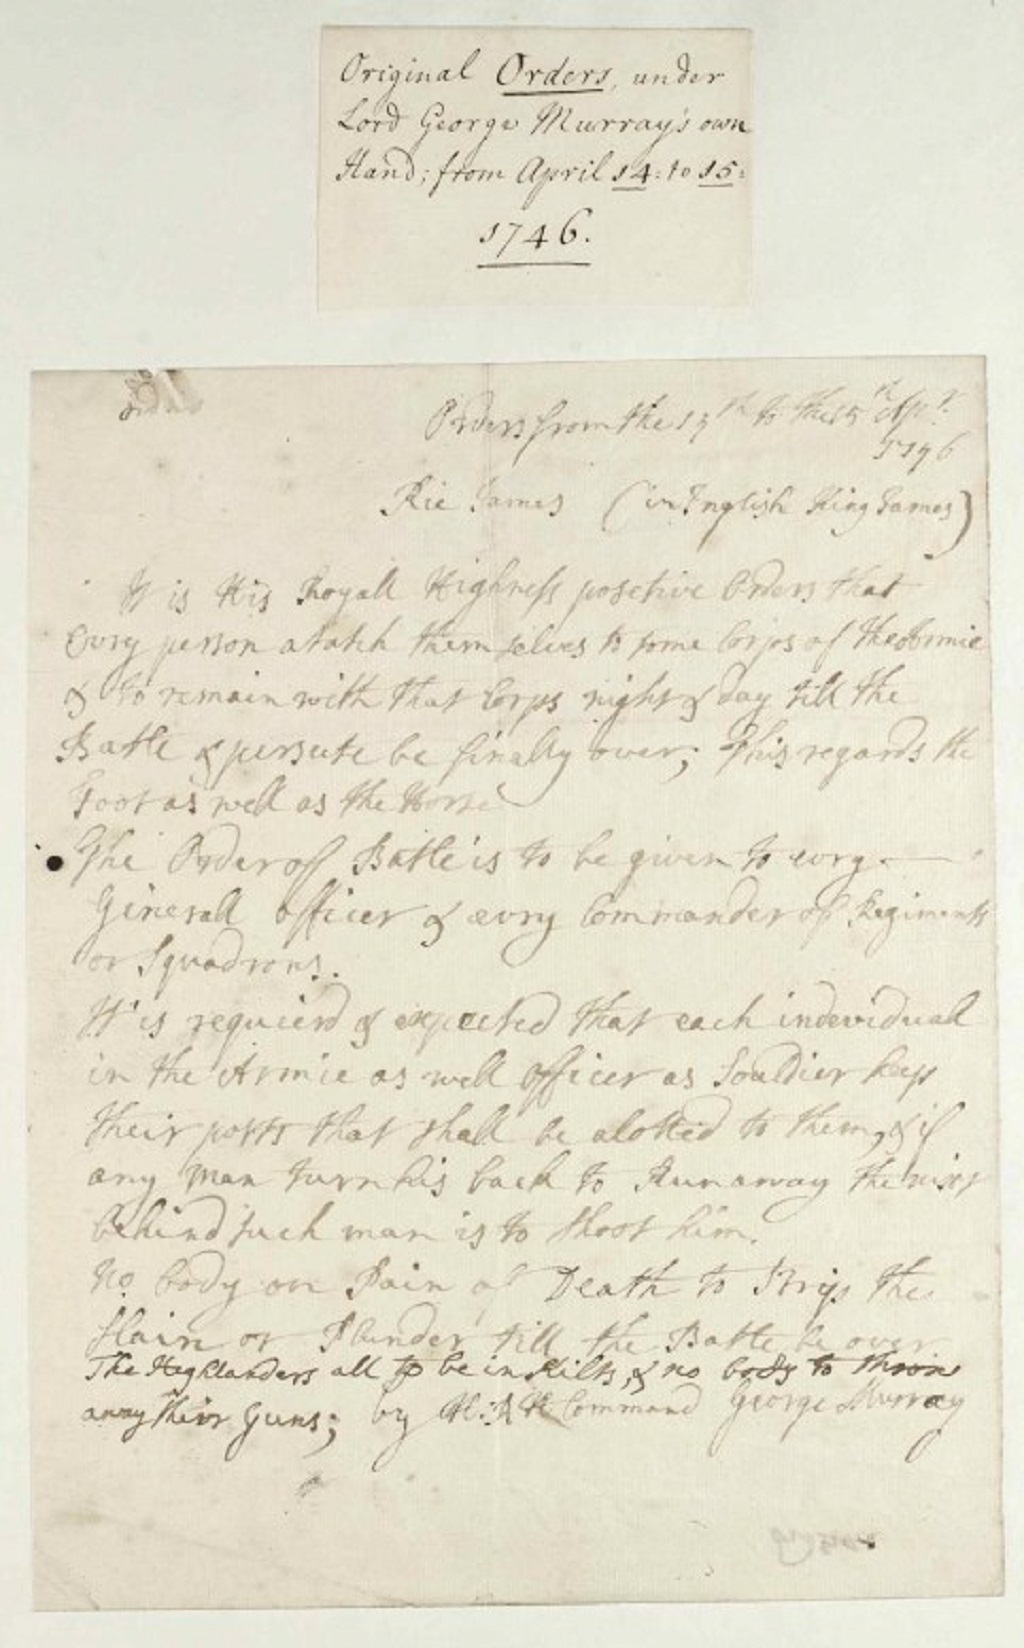 Original Orders, under
Lord George Murray's own
Hand; from April 14: to 15:
1746.
Orders from the 14th to the 15th Apr.
1746
Rie James (in English King James)
It is His Royall Highness posetive Orders that
Evry person atatch themselves to some Corps of the Armie
& to remain with that Corps night & day till the
Batle & persute be finally over; This regards the
Foot as well as the Horse
The Order of Batle is to be given to evry
Ginerall officer & evry Commander of Regiments
or Squadrons.
It is requierd & expected that each indevidual
in the Armie as well officer as Souldier keep
their posts that shall be alotted to them, & if
any man turn his back to Runaway the nixt
behind such man is to shoot him.
No body on Pain of Death to Strip the
slain or Plunder till the Batle be over
The Highlanders all to be in Kilts, & no body to throw
away their Guns; by H: R H Command George Murray